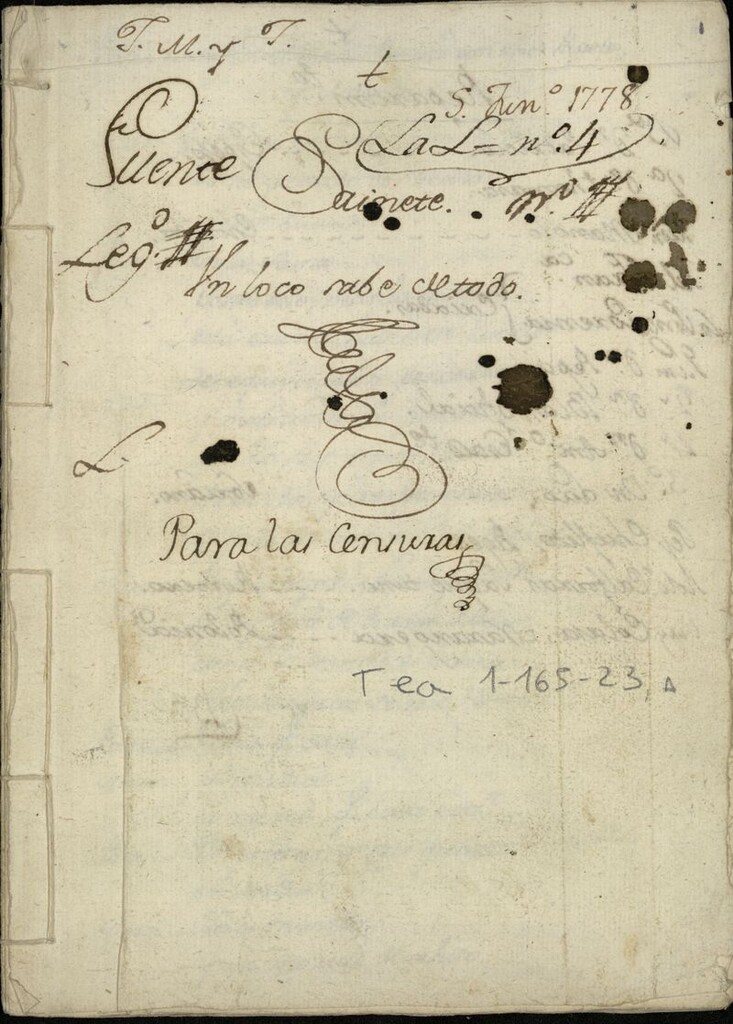 J. M. y J.
t
S. Jun.º 1778
La L= nº. 4
Fuente Sainete. nº #
Legº #
Un loco sabe de todo.
L.
Para las Censuras
Tea 1-165-23, A